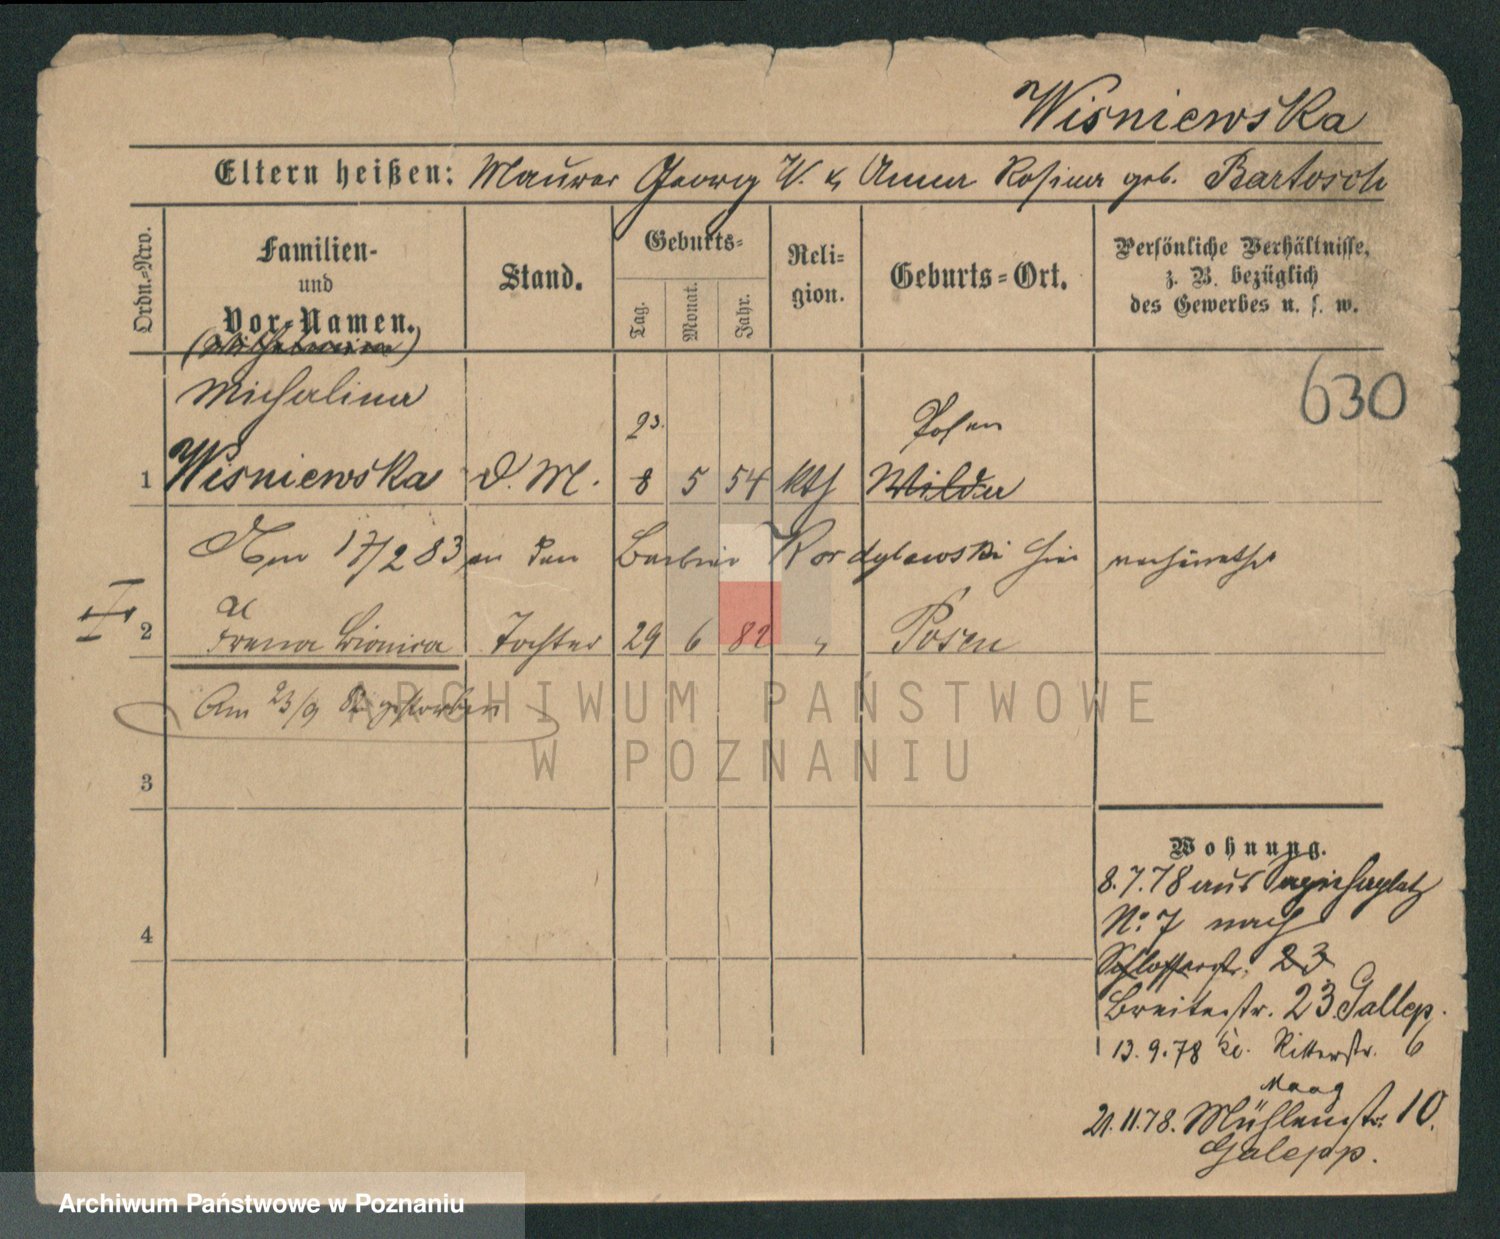 Wisniewska
Eltern heißen: Maurer Georg W. & Anna Rosina geb. Bartosch
Ordn.-Nro.
Familien- und Vor-Namen.
Stand.
Geburts-
Tag.
Monat.
Jahr.
Reli-gion.
Geburts-Ort.
Persönliche Verhältnisse, z. B. bezüglich des Gewerbes u. s. w.
(Wilhelmina)
Michalina
630
23.
Posen
1 Wisniewska D. M. 8 5 54 kth Wilda
Am 17/2 83 an den Barbier Kordylewski hier verheirathet
I
2 Tochter 29 6 82 " Posen
Am 23/9 82 gestorben
ARCHIWUM PAŃSTWOWE
W POZNANIU
3
Wohnung.
8.7.78 aus
No. 7 nach
4
Schlosserstr. 23
Breitestr. 23 Gallep.
13.9.78 kl. Ritterstr. 6
Maag
21.11.78. Mühlenstr. 10.
Galepp.
Archiwum Państwowe w Poznaniu